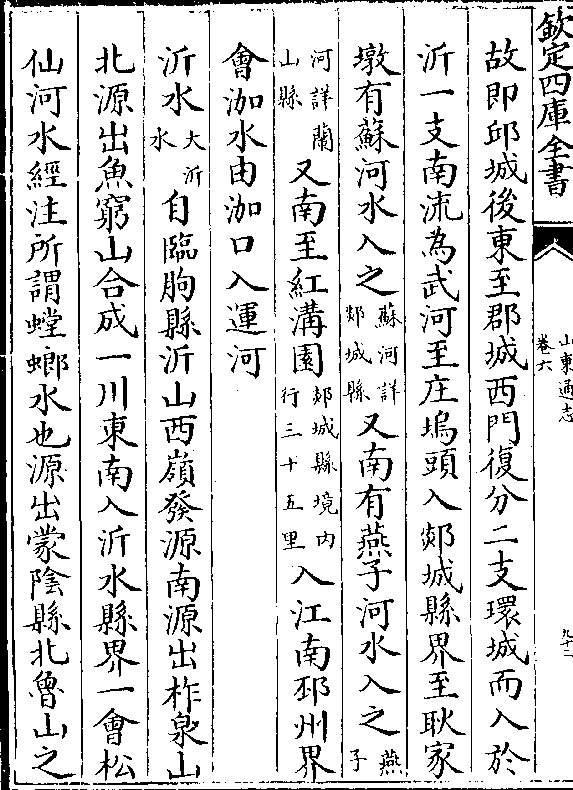 欽定四庫全書
山東通志
卷六
九十二
故即邱城後東至郡城西門復分二支環城而入於
沂一支南流為武河至庄塢頭入郯城縣界至耿家
墩有蘇河水入之蘇河詳郯城縣又南有燕子河水入之燕子
河詳蘭山縣又南至紅溝園郯城縣境内行三十五里入江南邳州界
會泇水由泇口入運河
沂水大沂水自臨朐縣沂山西嶺發源南源出柞泉山
北源出魚窮山合成一川東南入沂水縣界一會松
仙河水經注所謂螳螂水也源出蒙陰縣北魯山之